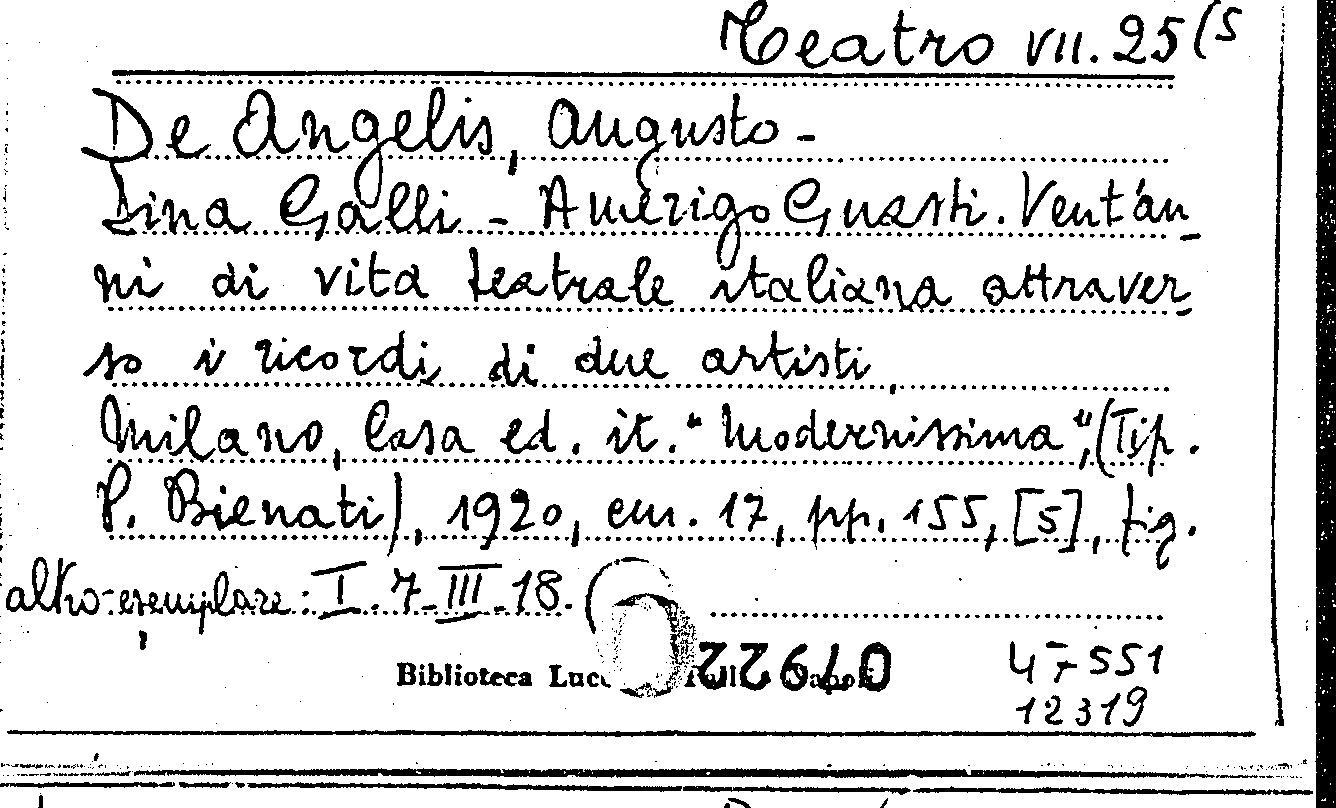 Teatro VII. 25(5
De Angelis, Augusto -
Dina Galli - Amerigo Guasti. Vent'an-
ni di vita teatrale italiana attraver-
so i ricordi di due artisti.
Milano, Casa ed. it. "Modernissima", (Tip.
P. Bienati), 1920, cm. 17, pp. 155, [5], fig.
altro esemplare: I. 7. III. 18.
Biblioteca Lucc
47551
12319